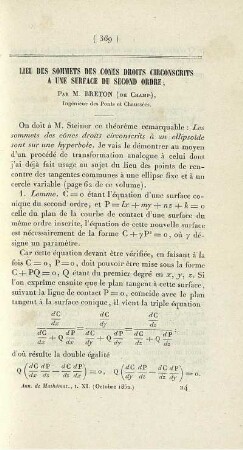 ( 369 )
LIEU DES SOMMETS DES CÔNES DROITS CIRCONSCRITS
A UNE SURFACE DU SECOND ORDRE;
PAR M. BRETON (DE CHAMP),
Ingénieur des Ponts et Chaussées.
On doit à M. Steiner ce théorème remarquable: Les
sommets des cônes droits circonscrits à un ellipsoïde
sont sur une hyperbole. Je vais le démontrer au moyen
d'un procédé de transformation analogue à celui dont
j'ai déjà fait usage au sujet du lieu des points de ren-
contre des tangentes communes à une ellipse fixe et à un
cercle variable (page 62 de ce volume).
1. Lemme. C = 0 étant l'équation d'une surface co-
nique du second ordre, et P = lx + my + nz + k = 0
celle du plan de la courbe de contact d'une surface du
même ordre inscrite, l'équation de cette nouvelle surface
est nécessairement de la forme C + γP² = 0, où γ dé-
signe un paramètre.
Car cette équation devant être vérifiée, en faisant à la
fois C = 0, P = 0, doit pouvoir être mise sous la forme
C + PQ = 0, Q étant du premier degré en x, y, z. Si
l'on exprime ensuite que le plan tangent à cette surface,
suivant la ligne de contact P = 0, coïncide avec le plan
tangent à la surface conique, il vient la triple équation
dC/dx / (dC/dx + Q dP/dx) = dC/dy / (dC/dy + Q dP/dy) = dC/dz / (dC/dz + Q dP/dz)
d'où résulte la double égalité
Q (dC/dx dP/dy − dC/dy dP/dx) = 0, Q (dC/dy dP/dz − dC/dz dP/dy) = 0.
Ann. de Mathémat., t. XI. (Octobre 1852.) 24